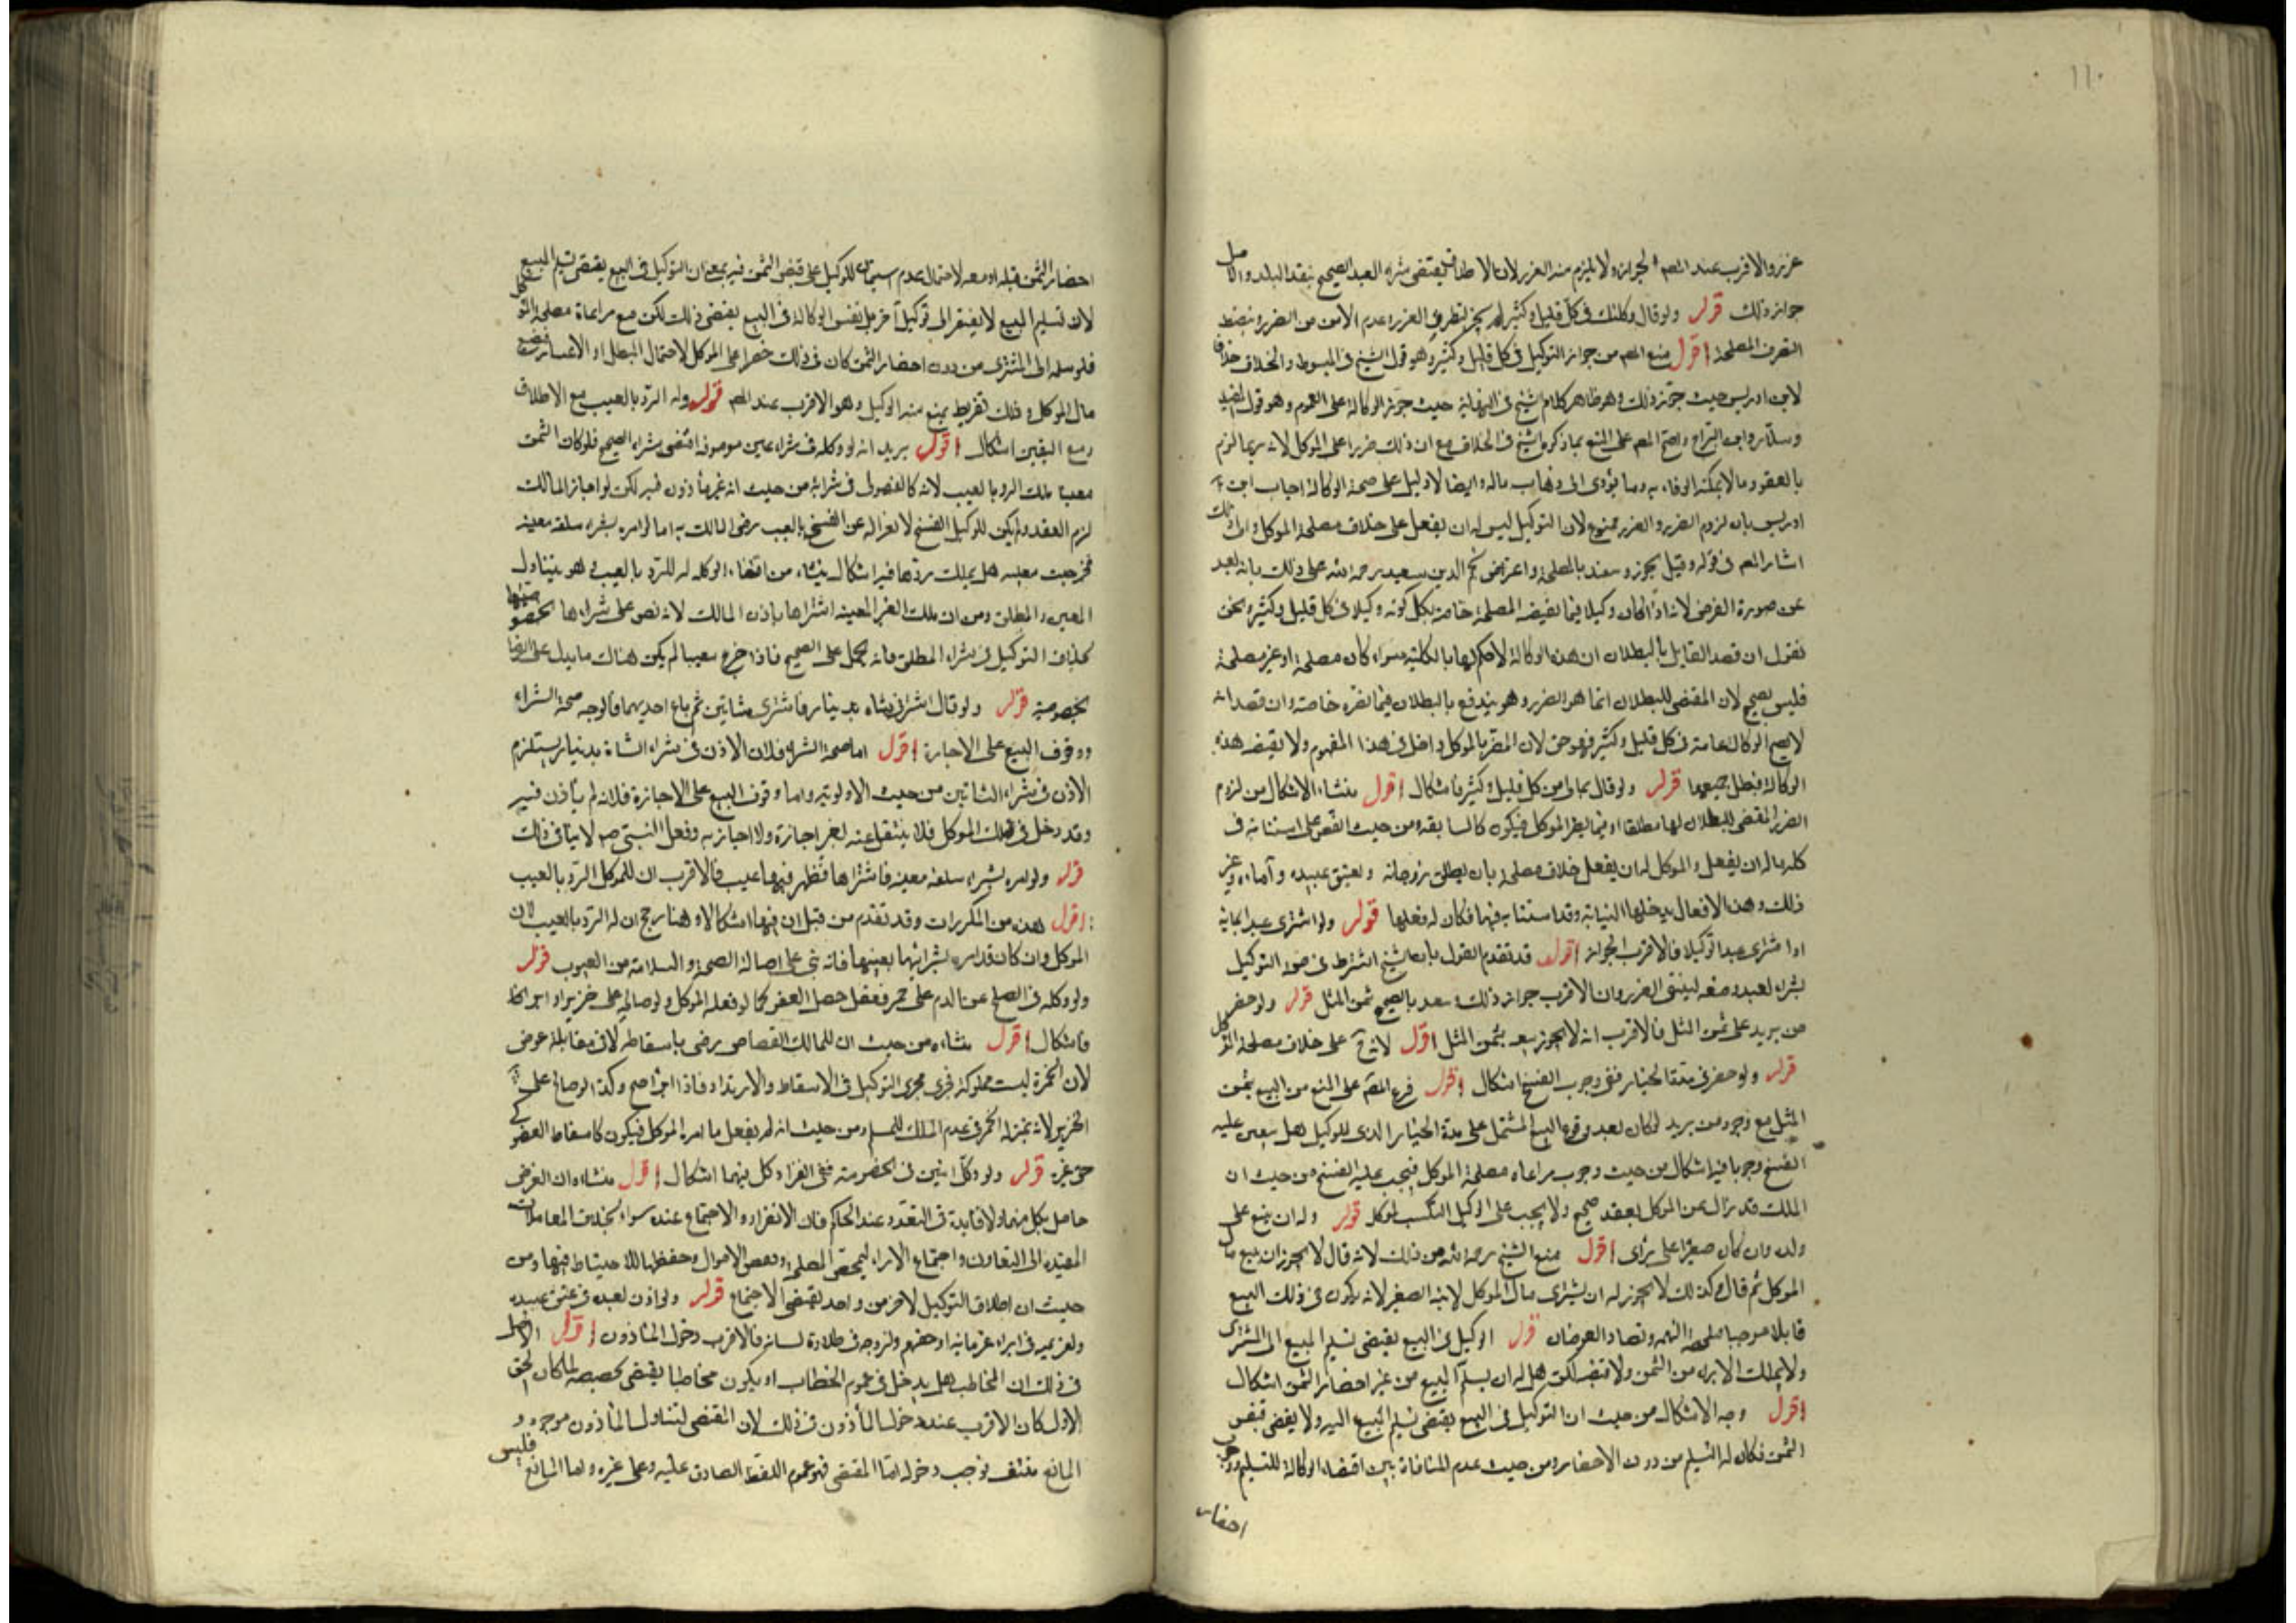 ١١٠
غرر والاقرب عند المصـ الجواز ولا يلزم منه الغرر لان الاطلاق يقتضى شراء العبد الصحيح بنقد البلد والاصل
جواز ذلك قوله ولو قال وكلتك فى كل قليل وكثير لم يجز لتطرق الغرر وعدم الامن من الضرر وينضبط
التصرف المصلحة اقول منع المصـ من جواز التوكيل فى كل قليل وكثير وهو قول الشيخ فى المبسوط والخلاف خلافا
لابن ادريس حيث جوز ذلك وهو ظاهر كلام الشيخ فى النهاية حيث جوز الوكالة على العموم وهو قول المفيد
وسلار وابن البراج واحتج المصـ على المنع بما ذكره الشيخ فى الخلاف مع ان ذلك ضررا على الموكل لانه ربما لزم
بالعقود ما لا يمكنه الوفاء به وما يؤدى الى ذهاب ماله وايضا لا دليل على صحة الوكالة اجاب ابن
ادريس بان لزوم الضرر والغرر ممنوع لان التوكيل ليس له ان يفعل على خلاف مصلحة الموكل والى ذلك
اشار المصـ فى قوله وقيل يجوز وينفذ بالمصلحة واعترض نجم الدين بن سعيد رحمه الله على ذلك بانه بعيد
عن صورة الفرض لانه اذا كان وكيلا فيما تقتضيه المصلحة خاصة بكل كونه وكيلا فى كل قليل وكثير ونحن
نقول ان قصد القايل بالبطلان ان هذه الوكالة لا حكم لها بالكلية سواء كان مصلحة او غير مصلحة
فليس بصحيح لان المقتضى للبطلان انما هو الضرر وهو يندفع بالبطلان فيما يضره خاصة وان قصد انه
لا تصح الوكالة عامة فى كل قليل وكثير فهو حق لان المضر بالموكل داخل فى هذا المفهوم ولا يقتضيه هذه
الوكالة فبطل جميعها قوله ولو قال بمالى من كل قليل وكثير فاشكال اقول منشاء الاشكال من لزوم
الضرر المقتضى للبطلان لها مطلقا او فيما يضر الموكل فيكون كالسابقة ومن حيث النص على استنابته فى
كل ماله ان يفعل والموكل له ان يفعل خلاف مصلحته بان يطلق زوجاته ويعتق عبيده وآماءه وغير
ذلك وهذه الافعال يدخلها النيابة وقد استنابه فيها فكان له فعلها قوله ولو اشترى عبدا بمائة
او اشترى عبدا تركيا فالاقرب الجواز اقول قد تقدم القول بان الشيخ اشترط فى صحة التوكيل
بشراء العبد وصفه لينتفى الغرر وان الاقرب جواز ذلك بالصحيح ثمن المثل قوله ولو حضر
من يريد على ثمن المثل فالاقرب انه لا يجوز بيعه بثمن المثل اقول لانه على خلاف مصلحة الموكل
قوله ولو حضر فى مدة الخيار ففى وجوب الفسخ اشكال اقول فرع المصـ على المنع من البيع بثمن
المثل مع وجود من يريد لو كان بعد وقوع البيع المشتمل على مدة الخيار الذى للوكيل هل يتعين عليه
الفسخ وجوبا فيه اشكال من حيث وجوب مراعاه مصلحة الموكل فيجب عليه الفسخ ومن حيث ان
الملك قد زال عن الموكل بعقد صحيح ولا يجب على الوكيل التكسب لموكله قوله وله ان يبيع على
ولده وان كان صغيرا على راى اقول منع الشيخ رحمه الله من ذلك لانه قال لا يجوز ان يبيع مال
الموكل ثم قال وكذلك لا يجوز له ان يشترى مال الموكل لابنه الصغير لانه يكون فى ذلك البيع
قابلا موجبا فتلحقه التهمة وتضاد الغرضان قوله الوكيل فى البيع يقتضى تسليم المبيع الى المشترى
ولا يملك الابراء من الثمن ولا قبضه لكن هل له ان يسلم المبيع من غير احضار الثمن اشكال
اقول وجه الاشكال من حيث ان التوكيل فى البيع يقتضى تسليم المبيع اليه ولا يقتضى قبض
الثمن فكان له التسليم من دون الاحضار ومن حيث عدم المنافاة بين اقتضاء الوكالة للتسليم ووجوب
احضار
احضار الثمن قبله او معه لاحتمال عدم استيمان للوكيل على قبض الثمن فيه بمعنى ان التوكيل فى البيع يقتضى تسليم المبيع
لان تسليم المبيع لا يفتقر الى توكيل آخر بل نفس الوكالة فى البيع يقتضى ذلك لكن مع مراعاة مصلحة الموكل
فلو سلم الى المشترى من دون احضار الثمن كان فى ذلك خطرا على الموكل لاحتمال المطل او الاعسار فيضيع
مال الموكل وذلك تفريط يمنع منه الوكيل وهو الاقرب عند المصـ قوله وله الرد بالعيب مع الاطلاق
ومع التعيين اشكال اقول يريد انه لو وكله فى شراء عين موصوفة اقتضى شراء الصحيح فلو كان الثمن
معيبا ملك الرد بالعيب لانه كالفضولى فى شرائه من حيث انه غير مأذون فيه لكن لو اجاز المالك
لزم العقد ولم يكن للوكيل الفسخ لانعزاله عن الفسخ بالعيب برضى المالك به اما لو امره بشراء سلعة معينه
فخرجت معيبه هل يملك ردها فيه اشكال ينشاء من اقتضاء الوكاله له للرد بالعيب وهو يتناول
المعين والمطلق ومن ان ملك الغير المعينه اشتراها باذن المالك لانه نص على شراءها بخصوصيتها
بخلاف التوكيل فى شراء المطلق فانه يحمل على الصحيح فاذا خرج معيبا لم يكن هناك ما يدل على الرضا
بخصوصيته قوله ولو قال اشتر لى شاه بدينار فاشترى شاتين ثم باع احديهما فالوجه صحة الشراء
ووقوف البيع على الاجازة اقول اما صحة الشراء فلان الاذن فى شراء الشاة بدينار يستلزم
الاذن فى شراء الشاتين من حيث الاولوية واما وقوف البيع على الاجازة فلانه لم يأذن فيه
وقد دخل فى ملك الموكل فلا ينتقل عنه بغير اجازة ولذا اجازته وفعل النبى صم لا ينافى ذلك
قوله ولو امره بشراء سلعه معينه فاشتراها فظهر فيها عيب فالاقرب ان للموكل الرد بالعيب
اقول هذه من المكررات وقد تقدم من قبل ان فيها اشكالا وهنا رجح ان له الرد بالعيب لان
الموكل وان كان قد امره بشرائها بعينها فانه بنى على اصالة الصحة والسلامة من العيوب قوله
ولو وكله فى الصلح عن الدم على خمر ففعل حصل العفو كما لو فعله الموكل ولو صالح على خنزير او ابراء
فاشكال اقول منشاءه من حيث ان للمالك القصاص رضى باسقاطه لا فى مقابلة عوض
لان الخمرة ليست مملوكة فجرى مجرى التوكيل فى الاسقاط والابراء فاذا ابراء صح وكذا لو صالح على
الخنزير لانه بمنزلة الخمر فى عدم الملك للمسلم ومن حيث انه لم يفعل ما امره الموكل فيكون كاسقاط العفو
حق غيره قوله ولو وكل اثنين فى الخصومة ففى انفراد كل منهما اشكال اقول منشاءه ان الغرض
حاصل بكل منهما ولا فايدة فى التعدد عند الحاكم فان الانفراد والاجتماع عنده سواء بخلاف المعاملات
المفتقره الى التعاون واجتماع الاراء ليحصل المصلحة وبعض الاموال وحفظها للاحتياط فيها ومن
حيث ان اطلاق التوكيل لاكثر من واحد يقتضى الاجتماع قوله ولو اذن لعبده فى عتق عبيده
ولغريمه فى ابراء غرمائه او حبسهم ولزوجه فى طلاق نسائه فالاقرب دخول المأذون اقول الاصل
فى ذلك ان المخاطب هل يدخل فى عموم الخطاب او يكون مخاطبا يقتضى تخصيصه لما كان الحق
الاول كان الاقرب عنده دخول المأذون فى ذلك لان المقتضى لتناول المأذون موجود و
المانع منتف فوجب دخوله اما المقتضى فهو عموم اللفظ الصادق عليه وعلى غيره واما المانع فليس